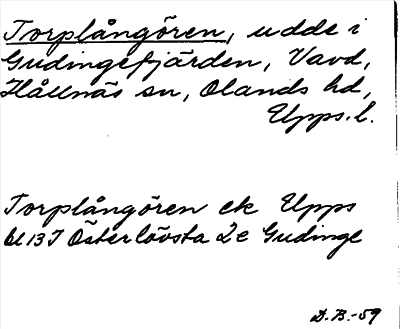 Torplångören, udde i
Gudingefjärden, Vavd,
Hållnäs sn, Olands hd,
Upps. l.
Torplångören ek Upps
bl 13 J Österlövsta 2e Gudinge
D.B.-59